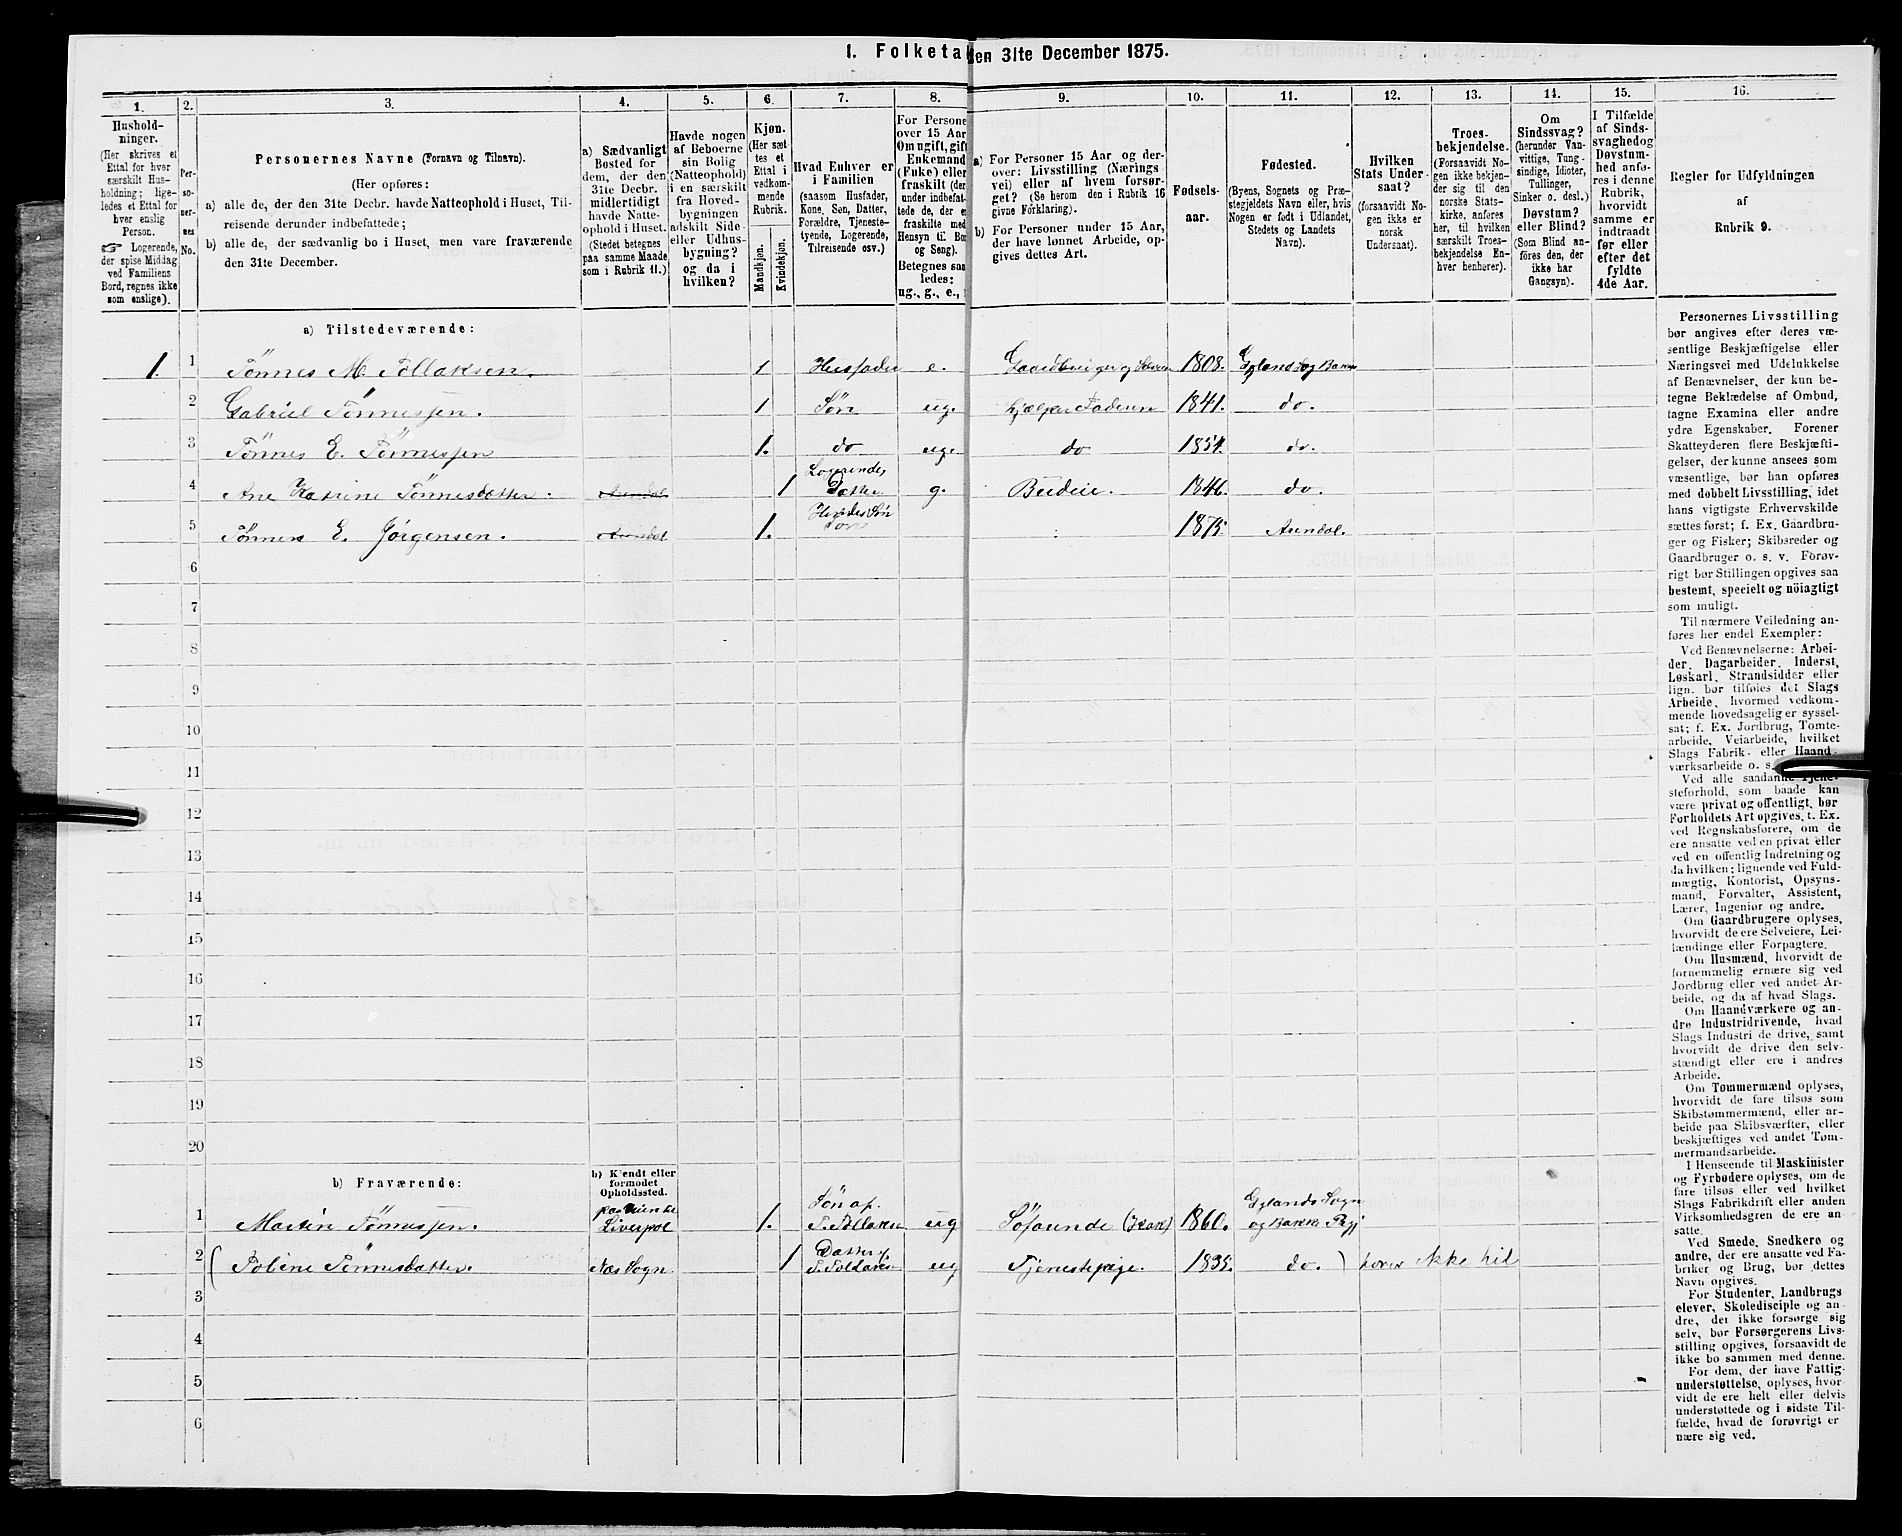 1. Folketa
den 31te December 1875.
1.
2.
3.
4.
5.
6.
7.
8.
9.
10.
11.
12.
13.
14.
15.
16.
Hushold-
ninger.
(Her skrives et
Ettal for hver
særskilt Hus-
holdning; lige-
ledes et Ettal for
hver enslig
Person.
☞ Logerende,
der spise Middag
ved Familiens
Bord, regnes ikke
som enslige).
Per-
so-
ner-
nes
No.
Personernes Navne (Fornavn og Tilnavn).
(Her opføres:
a) alle de, der den 31te Decbr. havde Natteophold i Huset, Til-
reisende derunder indbefattede;
b) alle de, der sædvanlig bo i Huset, men vare fraværende
den 31te December.
a) Sædvanligt
Bosted for
dem, der den
31te Decbr.
midlertidigt
havde Natte-
ophold i Huset.
(Stedet betegnes
paa samme Maade
som i Rubrik 11.)
Havde nogen
af Beboerne
sin Bolig
(Natteophold)
i en særskilt
fra Hoved-
bygningen
adskilt Side-
eller Udhus-
bygning?
og da i
hvilken?
Kjøn.
(Her sæt-
tes et
Ettal i
vedkom-
mende
Rubrik.
Mandkjøn.
Kvindekjøn.
Hvad Enhver er
i Familien
(saasom Husfader,
Kone, Søn, Datter,
Forældre, Tjeneste-
tyende, Logerende,
Tilreisende osv.)
For Persone
over 15 Aar
Om ugift, gift
Enkemand
(Enke) eller
fraskilt (der
under indbefat-
tede de, der e
fraskilte med
Hensyn til Bo
og Seng).
Betegnes saa
ledes:
ug., g., e.,
a) For Personer 15 Aar og der-
over: Livsstilling (Nærings-
vei) eller af hvem forsør-
get? (Se herom den i Rubrik 16
givne Forklaring).
b) For Personer under 15 Aar,
der have lønnet Arbeide, op-
gives dettes Art.
Fødsels-
aar.
Fødested.
(Byens, Sognets og Præ-
stegjeldets Navn eller, hvis
Nogen er født i Udlandet,
Stedets og Landets
Navn).
Hvilken
Stats Under-
saat?
(forsaavidt No-
gen ikke er
norsk
Undersaat).
Troes-
bekjendelse.
(Forsaavidt No-
gen ikke bekjen-
der sig til den
norske Stats-
kirke, anføres
her, til hvilken
særskilt Troes-
bekjendelse En-
hver henhører).
Om
Sindssvag?
(herunder Van-
vittige, Tung-
sindige, Idioter,
Tullinger,
Sinker o. desl.)
Døvstum?
eller Blind?
(Som Blind an-
føres den, der
ikke har
Gangsyn).
I Tilfælde
af Sinds-
svaghed og
Døvstum-
hed anfø-
res i denne
Rubrik,
hvorvidt
samme er
indtraadt
før eller
efter det
fyldte
4de Aar.
Regler for Udfyldningen
af
Rubrik 9.
a) Tilstedeværende:
1. 1 Tønnes M. Tollaksen. 1 Husfader e. Gaardbruger og 1808. Egland Sog Bakke
2 Gabriel Tønnessen. 1 Søn ug. hjælper Faderen 1841. do.
3 Tønnes E. Tønnessen 1. do ug. do 1854. do.
4 Ane Katrine Tønnesdatter. Arendal 1 Logerende, Datter g. Budeie. 1846. do.
5 Tønnes E. Jørgensen. Arendal 1. Hendes Søn 1875. Arendal.
6
7
8
9
10
11
12
13
14
15
16
17
18
19
20
b) Fraværende:
b) Kjendt eller
formodet
Opholdssted.
1 Martin Tønnessen. Liverpol 1. Søn af T. Tollaksen ug Søfarende (Kok) 1860. Eglands Sogn og Bakke Pgj
2 ( Tobine Tønnesdatter. Næs Sogn 1 Datter af T. Tollaksen ug Tjenestepige. 1835. do. ) hører ikke hid
3
4
5
6
Personernes Livsstilling
bør angives efter deres væ-
sentlige Beskjæftigelse eller
Næringsvei med Udelukkelse
af Benævnelser, der kun be-
tegne Beklædelse af Ombud,
tagne Examina eller andre
ydre Egenskaber. Forener
Skatteyderen flere Beskjæfti-
gelser, der kunne ansees som
væsentlige, bør han opføres
med dobbelt Livsstilling, idet
hans vigtigste Erhvervskilde
sættes først; f. Ex. Gaardbru-
ger og Fisker; Skibsreder og
Gaardbruger o. s. v. Forøv-
rigt bør Stillingen opgives saa
bestemt, specielt og nöiagtigt
som muligt.
Til nærmere Veiledning an-
føres her endel Exempler:
Ved Benævnelserne: Arbei-
der, Dagarbeider, Inderst,
Løskarl, Strandsidder eller
lign. bør tilføies det Slags
Arbeide, hvormed vedkom-
mende hovedsagelig er syssel-
sat; f. Ex. Jordbrug, Tomte-
arbeide, Veiarbeide, hvilket
Slags Fabrik- eller Haand-
værksarbeide o. s.
Ved alle saadanne Tjene-
steforhold, som baade kan
være privat og offentligt, bør
Forholdets Art opgives, t. Ex.
ved Regnskabsførere, om de
ere ansatte ved en privat eller
ved en offentlig Indretning og
da hvilken; lignende ved Fuld-
mægtig, Kontorist, Opsyns-
mand, Forvalter, Assistent,
Lærer, Ingeniør og andre.
Om Gaardbrugere oplyses,
hvorvidt de ere Selveiere, Lei-
lændinge eller Forpagtere.
Om Husmænd, hvorvidt de
fornemmelig ernære sig ved
Jordbrug eller ved andet Ar-
beide, og da af hvad Slags.
Om Haandværkere og an-
dre Industridrivende, hvad
Slags Industri de drive, samt
hvorvidt de drive den selv-
stændigt eller ere i andres
Arbeide.
Om Tømmermænd oplyses,
hvorvidt de fare tilsøs som
Skibstømmermænd, eller ar-
beide paa Skibsværfter, eller
beskjæftiges ved andet Tøm-
mermandsarbeide.
I Henseende til Maskinister
og Fyrbødere oplyses, om de
fare tilsøs eller ved hvilket
Slags Fabrikdrift eller anden
Virksomhedsgren de ere an-
satte.
Ved Smede, Snedkere og
andre, der ere ansatte ved Fa-
briker og Brug, bør dettes
Navn opgives.
For Studenter, Landbrugs-
elever, Skoledisciple og an-
dre, der ikke forsørge sig
selv, bør Forsørgerens Livs-
stilling opgives, forsaavidt de
ikke bo sammen med denne.
For dem, der have Fattig-
understøttelse, oplyses, hvor-
vidt de ere helt eller delvis
understøttede og i sidste Til-
fælde, hvad de forøvrigt er-
nære sig ved.